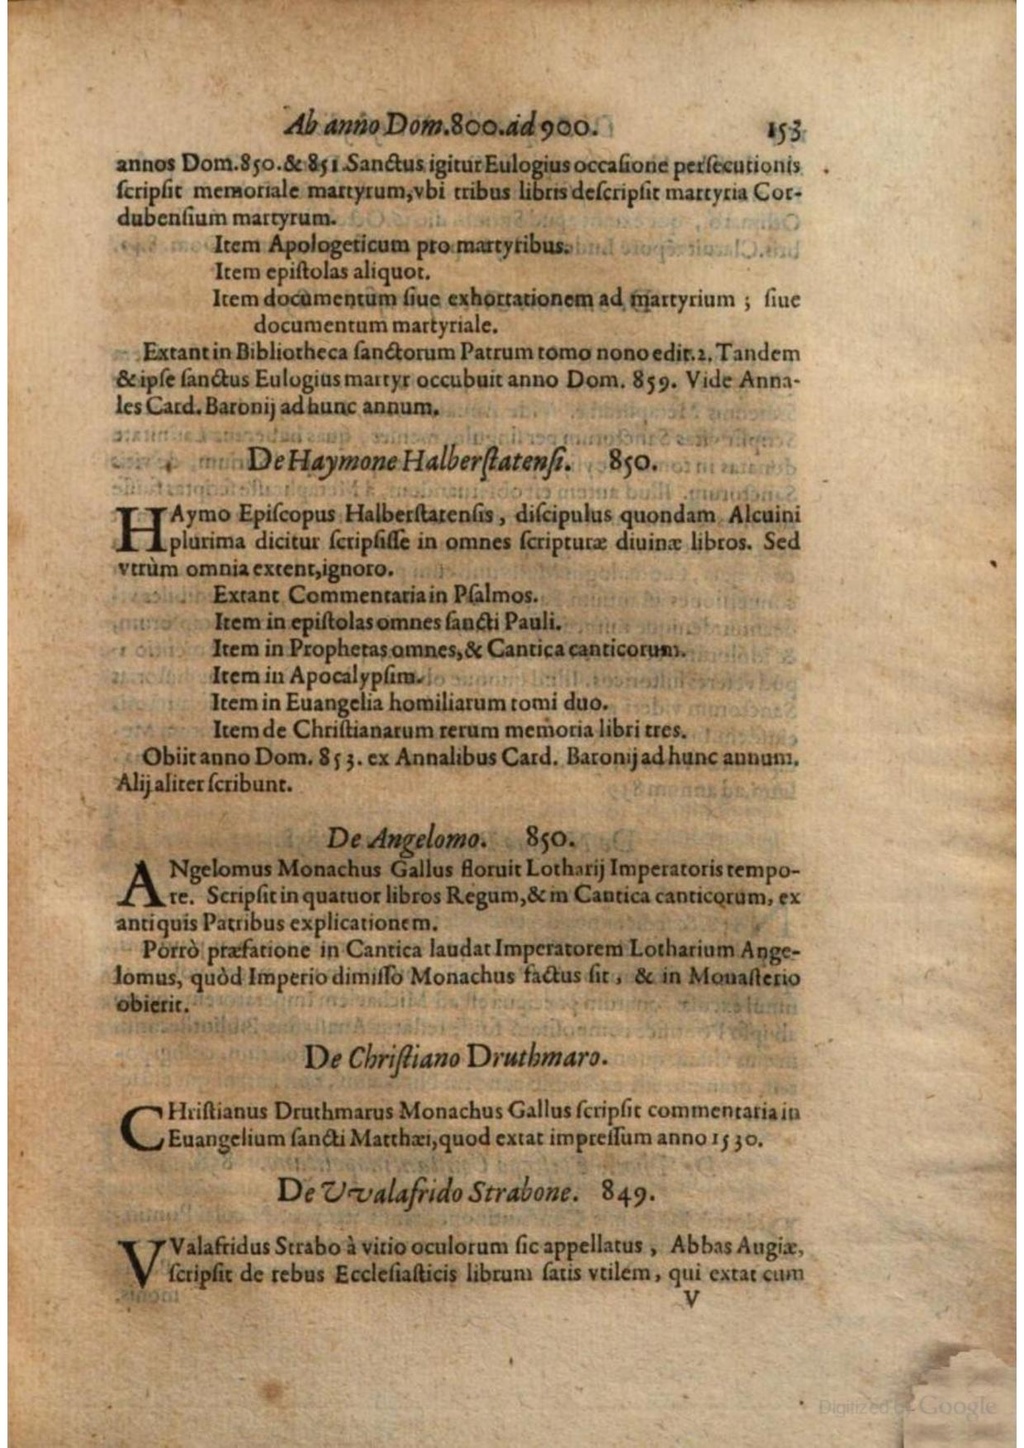 Ab anno Dom.800.ad 900. 153
annos Dom.850.& 851.Sanctus igitur Eulogius occaſione perſecutionis
ſcripſit memoriale martyrum,vbi tribus libris deſcripſit martyria Cor-
dubenſium martyrum.
Item Apologeticum pro martyribus.
Item epiſtolas aliquot.
Item documentum ſiue exhortationem ad martyrium ; ſiue
documentum martyriale.
Extant in Bibliotheca ſanctorum Patrum tomo nono edit.2. Tandem
& ipſe ſanctus Eulogius martyr occubuit anno Dom. 859. Vide Anna-
les Card. Baronij ad hunc annum.
De Haymone Halberſtatenſi. 850.
HAymo Epiſcopus Halberſtatenſis, diſcipulus quondam Alcuini
plurima dicitur ſcripſiſſe in omnes ſcripturæ diuinæ libros. Sed
vtrùm omnia extent,ignoro.
Extant Commentaria in Pſalmos.
Item in epiſtolas omnes ſancti Pauli.
Item in Prophetas omnes,& Cantica canticorum.
Item in Apocalypſim.
Item in Euangelia homiliarum tomi duo.
Item de Chriſtianarum rerum memoria libri tres.
Obiit anno Dom. 853. ex Annalibus Card. Baronij ad hunc annum.
Alij aliter ſcribunt.
De Angelomo. 850.
ANgelomus Monachus Gallus floruit Lotharij Imperatoris tempo-
re. Scripſit in quatuor libros Regum,& in Cantica canticorum, ex
antiquis Patribus explicationem.
Porrò præfatione in Cantica laudat Imperatorem Lotharium Ange-
lomus, quòd Imperio dimiſſo Monachus factus ſit, & in Monaſterio
obierit.
De Chriſtiano Druthmaro.
CHriſtianus Druthmarus Monachus Gallus ſcripſit commentaria in
Euangelium ſancti Matthæi,quod extat impreſſum anno 1530.
De VValafrido Strabone. 849.
VValafridus Strabo à vitio oculorum ſic appellatus, Abbas Augiæ,
ſcripſit de rebus Eccleſiaſticis librum ſatis vtilem, qui extat cum
V
Digitized by Google